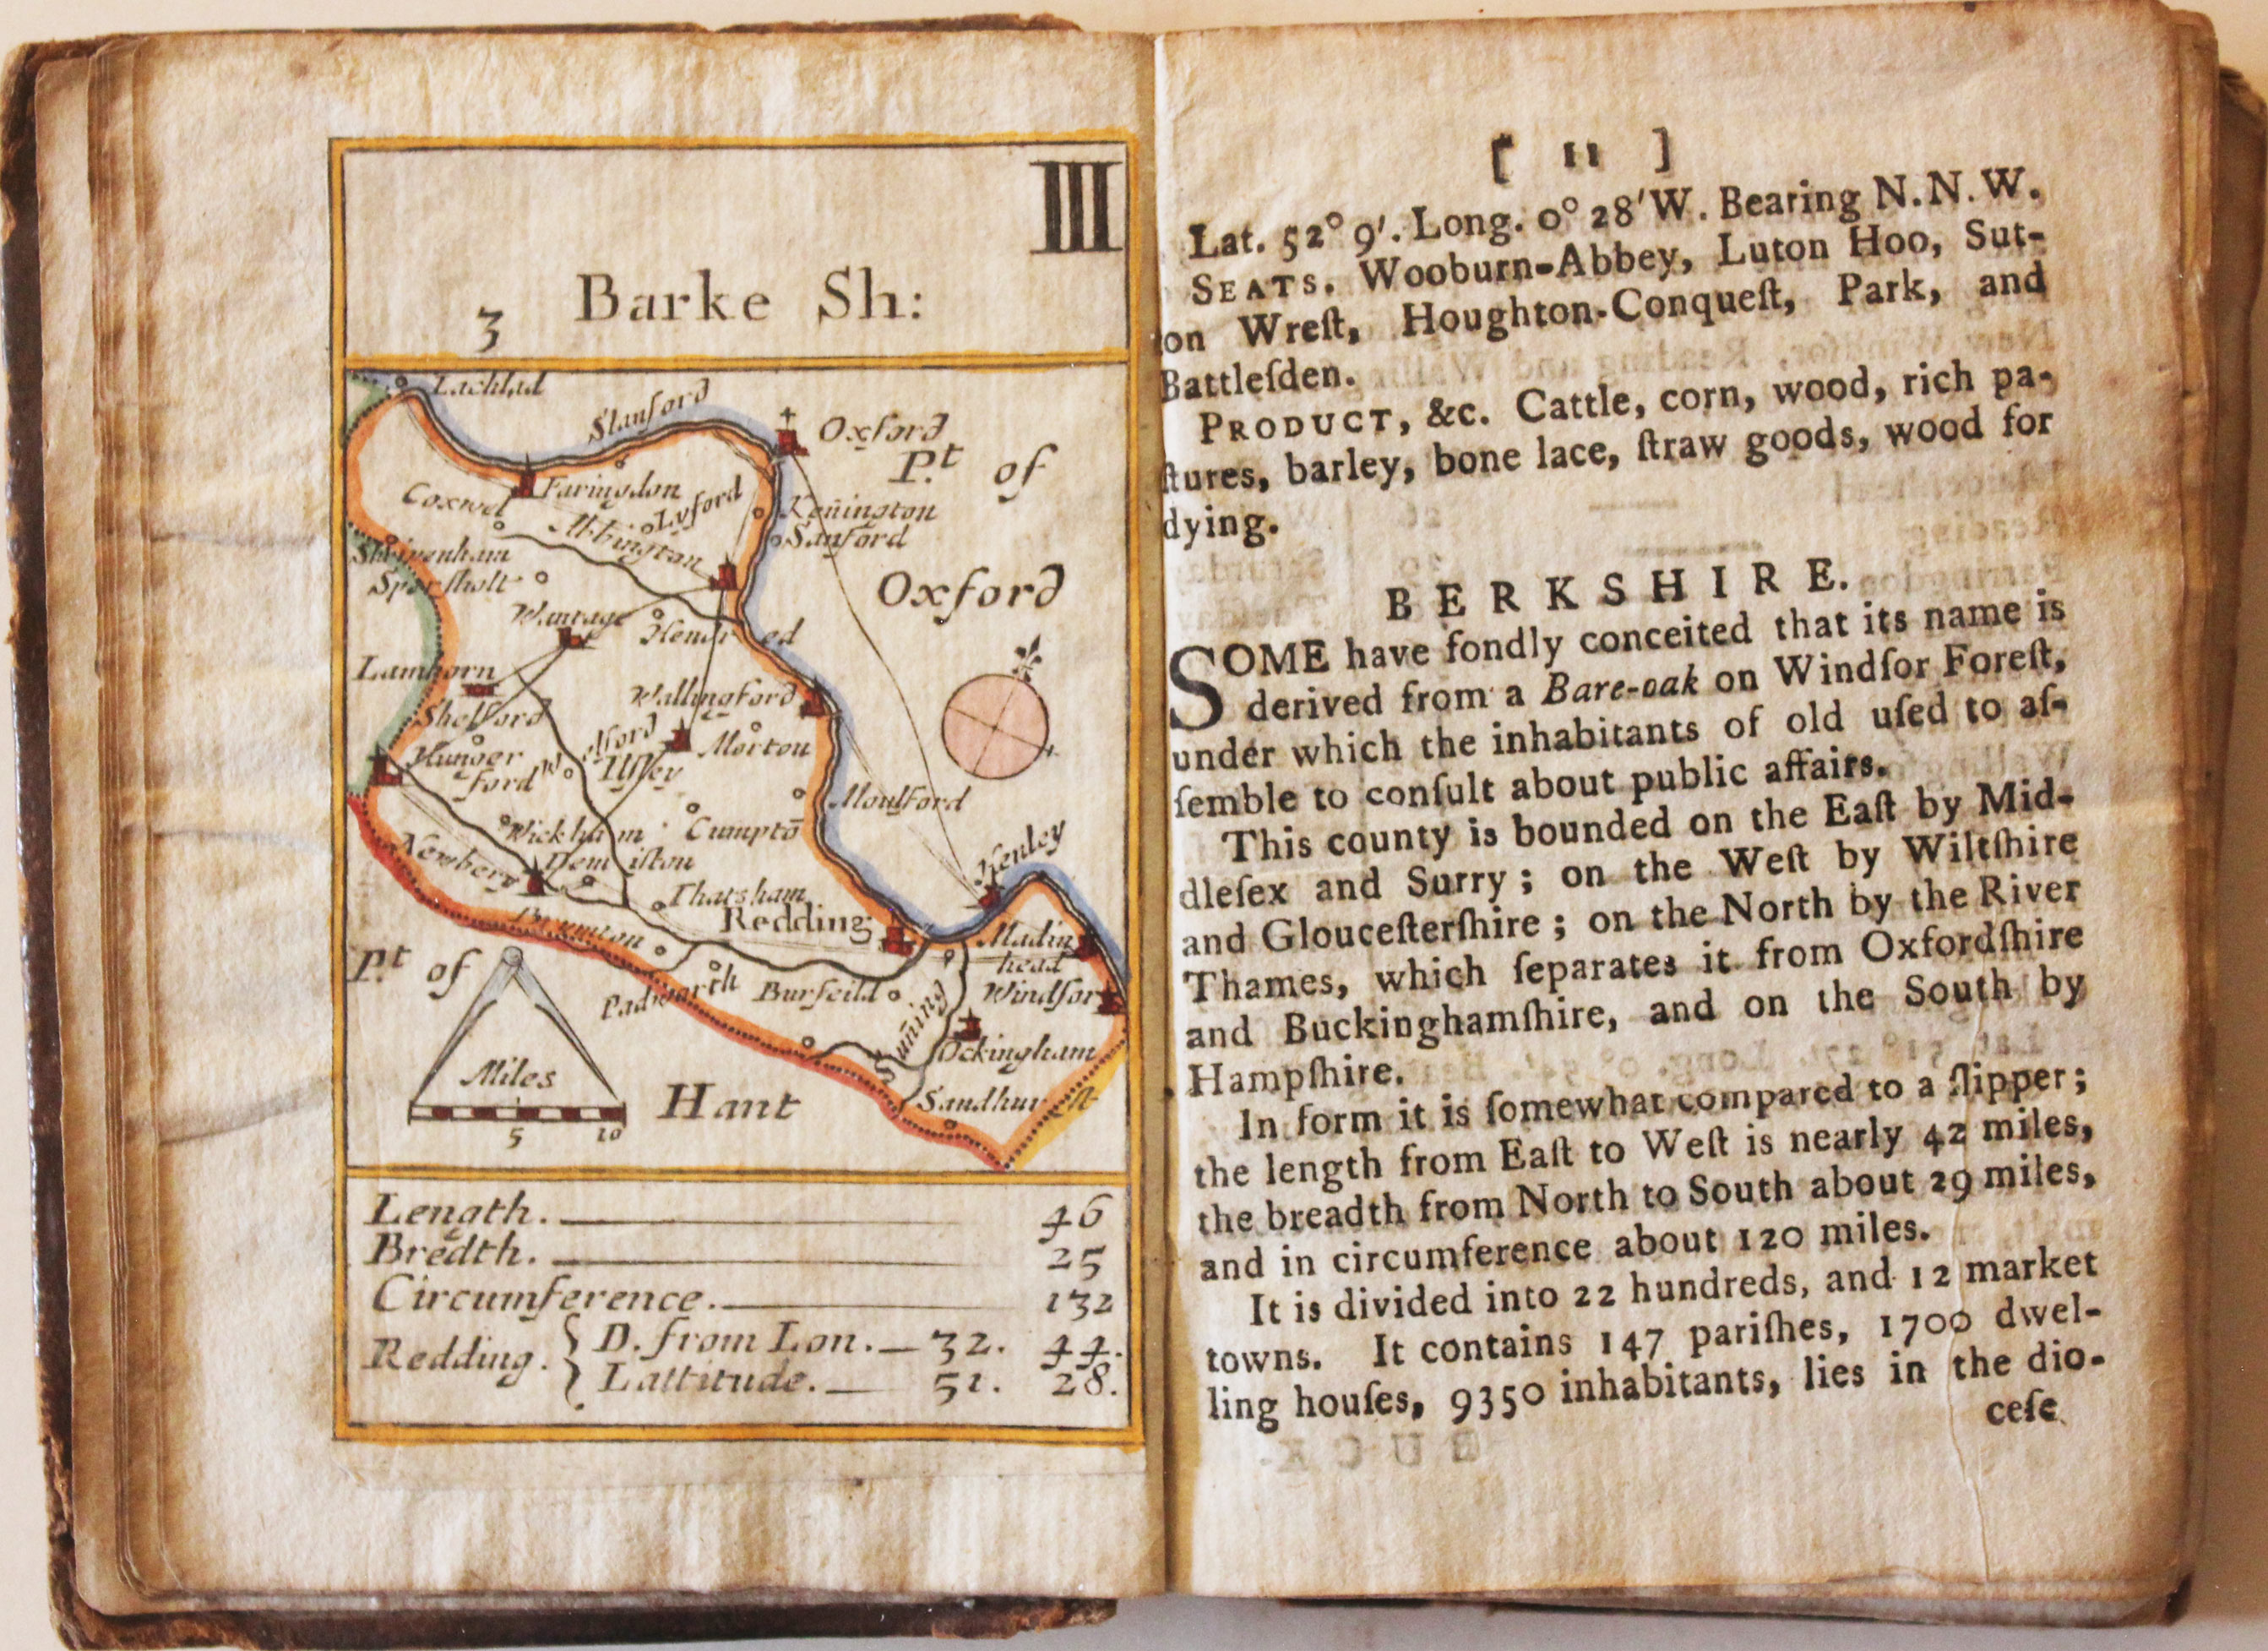 III
3 Barke Sh:
Lachlad
Stanford
Oxford
Pt of
Faringdon
Coxwel
Lyford
Abbington
Kenington
Sanford
Shrivenham
Sparsholt
Oxford
Wantage
Hendr ed
Lamborn
Wallingford
Shefford
Hunger
ford
Welford
Ilsley
Morton
Moulford
Wickham
Cumptō
Henley
Newbery
Dem iston
Thatsham
Redding
Madin
head
Pt of
Padworth
Burfeild
Windsor
Suning
Ockingham
Miles
5 10
Hant
Sandhurst
Length. 46
Bredth. 25
Circumference. 132
Redding. { D. from Lon. 32. 44.
Lattitude. 51. 28.
[ 11 ]
Lat. 52° 9'. Long. 0° 28' W. Bearing N.N.W.
SEATS. Wooburn-Abbey, Luton Hoo, Sut-
ton Wreſt, Houghton-Conqueſt, Park, and
Battleſden.
PRODUCT, &c. Cattle, corn, wood, rich pa-
ſtures, barley, bone lace, ſtraw goods, wood for
dying.
BERKSHIRE.
SOME have fondly conceited that its name is
derived from a Bare-oak on Windſor Foreſt,
under which the inhabitants of old uſed to aſ-
ſemble to conſult about public affairs.
This county is bounded on the Eaſt by Mid-
dleſex and Surry; on the Weſt by Wiltſhire
and Glouceſterſhire; on the North by the River
Thames, which ſeparates it from Oxfordſhire
and Buckinghamſhire, and on the South by
Hampſhire.
In form it is ſomewhat compared to a ſlipper;
the length from Eaſt to Weſt is nearly 42 miles,
the breadth from North to South about 29 miles,
and in circumference about 120 miles.
It is divided into 22 hundreds, and 12 market
towns. It contains 147 pariſhes, 1700 dwel-
ling houſes, 9350 inhabitants, lies in the dio-
ceſe